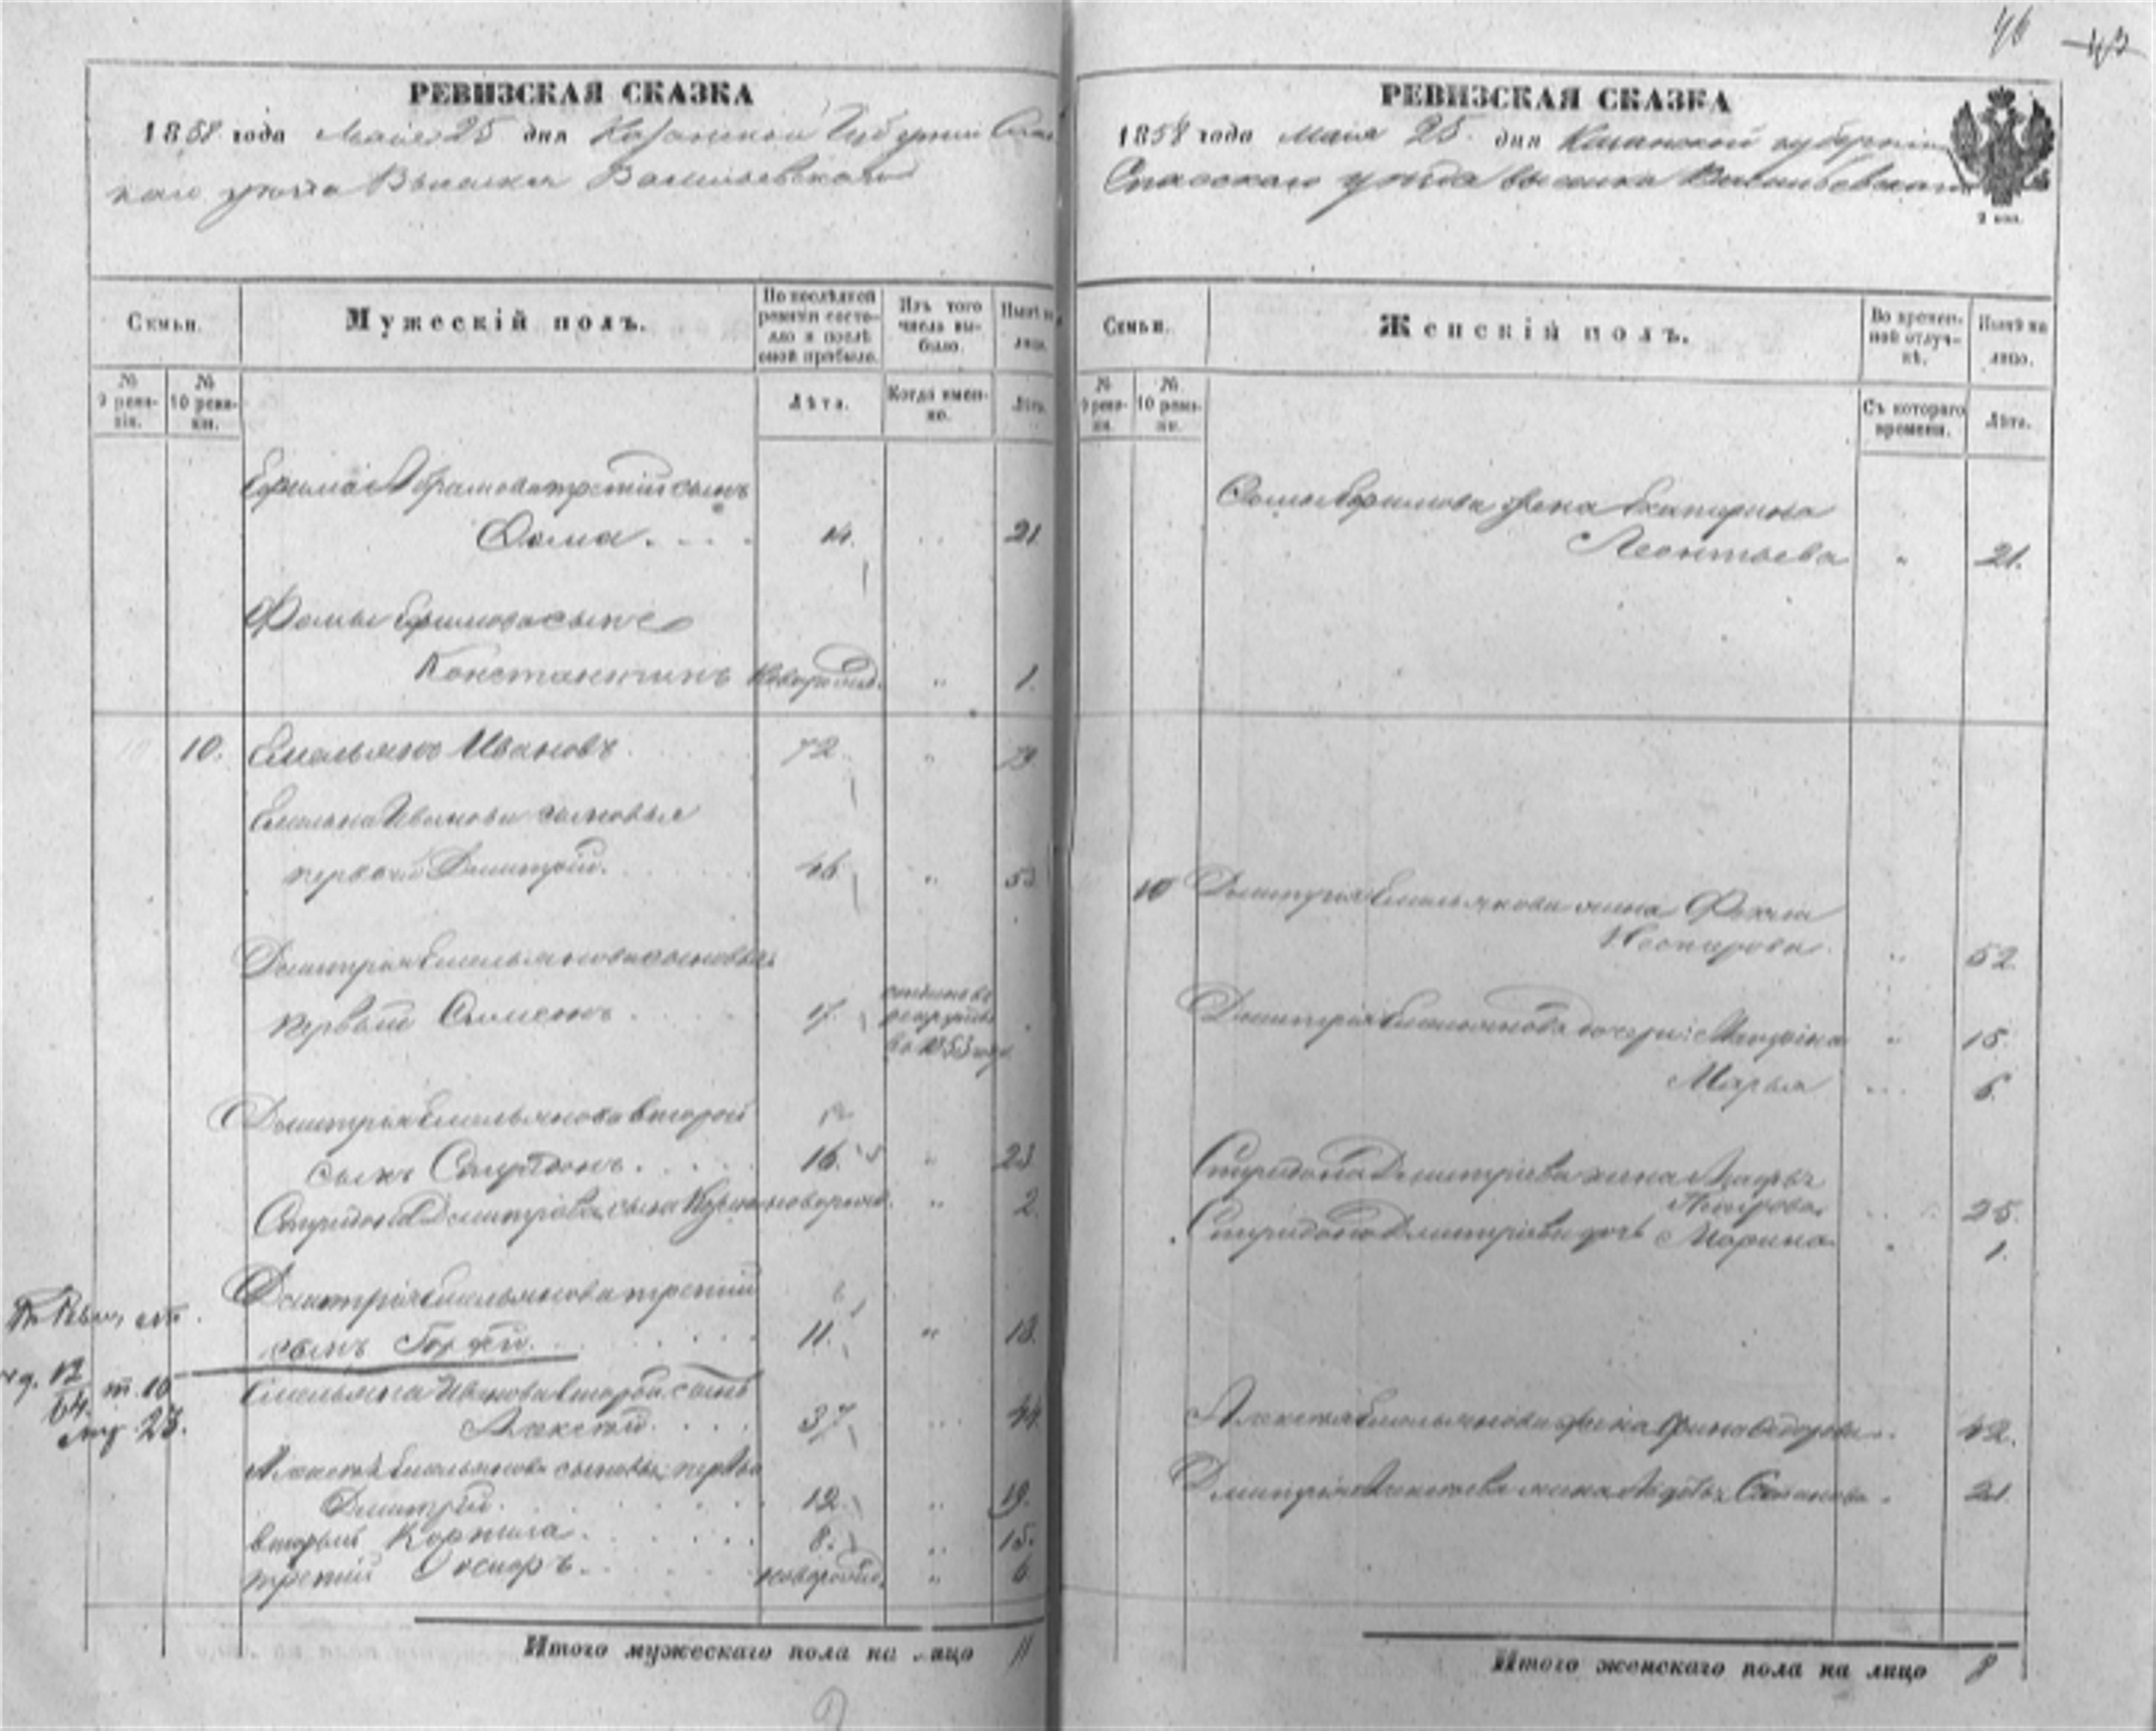 46
РЕВИЗСКАЯ СКАЗКА
1858 года Маия 25 дня Казанской Губернии Спас
каго уезда Выселка Васильевскаго
Семьи.
Мужескій полъ.
По послѣдней ревизіи состояло и послѣ оной прибыло.
Изъ того числа выбыло.
Нынѣ на лицо.
№ 9 ревизіи.
№ 10 ревизіи.
Лѣта.
Когда именно.
Лѣта.
Ефима Абрамова третій сынъ
Фома. 14. 21.
Фомы Ефимова сынъ
Константинъ новорожд. " 1.
10. Емельянъ Ивановъ 72. "
Емельяна Иванова сыновья
первый Дмитрій. 46. " 53
Дмитрія Емельянова сыновья
первый Симеонъ 17. отданъ въ рекруты въ 1853 году
Дмитрія Емельянова второй
сынъ Спиридонъ. 16. " 23
Спиридона Дмитріева сынъ новорожд. " 2.
Дмитрія Емельянова третій
сынъ 11. " 18.
Емельяна Иванова второй сынъ
Алексей. 37 " 44.
Алексея Емельянова сыновья, первый
Дмитрій. 12. " 19.
вторый Корнила. 8. " 15.
третій новорожд. " 6
т. 10
23.
Итого мужескаго пола на лицо 11
РЕВИЗСКАЯ СКАЗКА
1858 года Маия 25 дня Казанской губерніи
Спасскаго уезда выселка Васильевскаго
2 коп.
Семьи.
Женскій полъ.
Во временной отлучкѣ.
Нынѣ на лицо.
№ 9 ревизіи.
№ 10 ревизіи.
Съ котораго времени.
Лѣта.
Фомы Ефимова жена Екатерина
Леонтьева " 21.
10 Дмитрія Емельянова жена
" 52.
Дмитрія Емельянова дочери: " 15.
Марья " 6.
Спиридона Дмитріева жена
Петрова " 25.
Спиридона Дмитріева дочь Марина " 1.
Алексея Емельянова жена Федорова 42.
Дмитрія Алексеева жена Степанова 21.
Итого женскаго пола на лицо 8